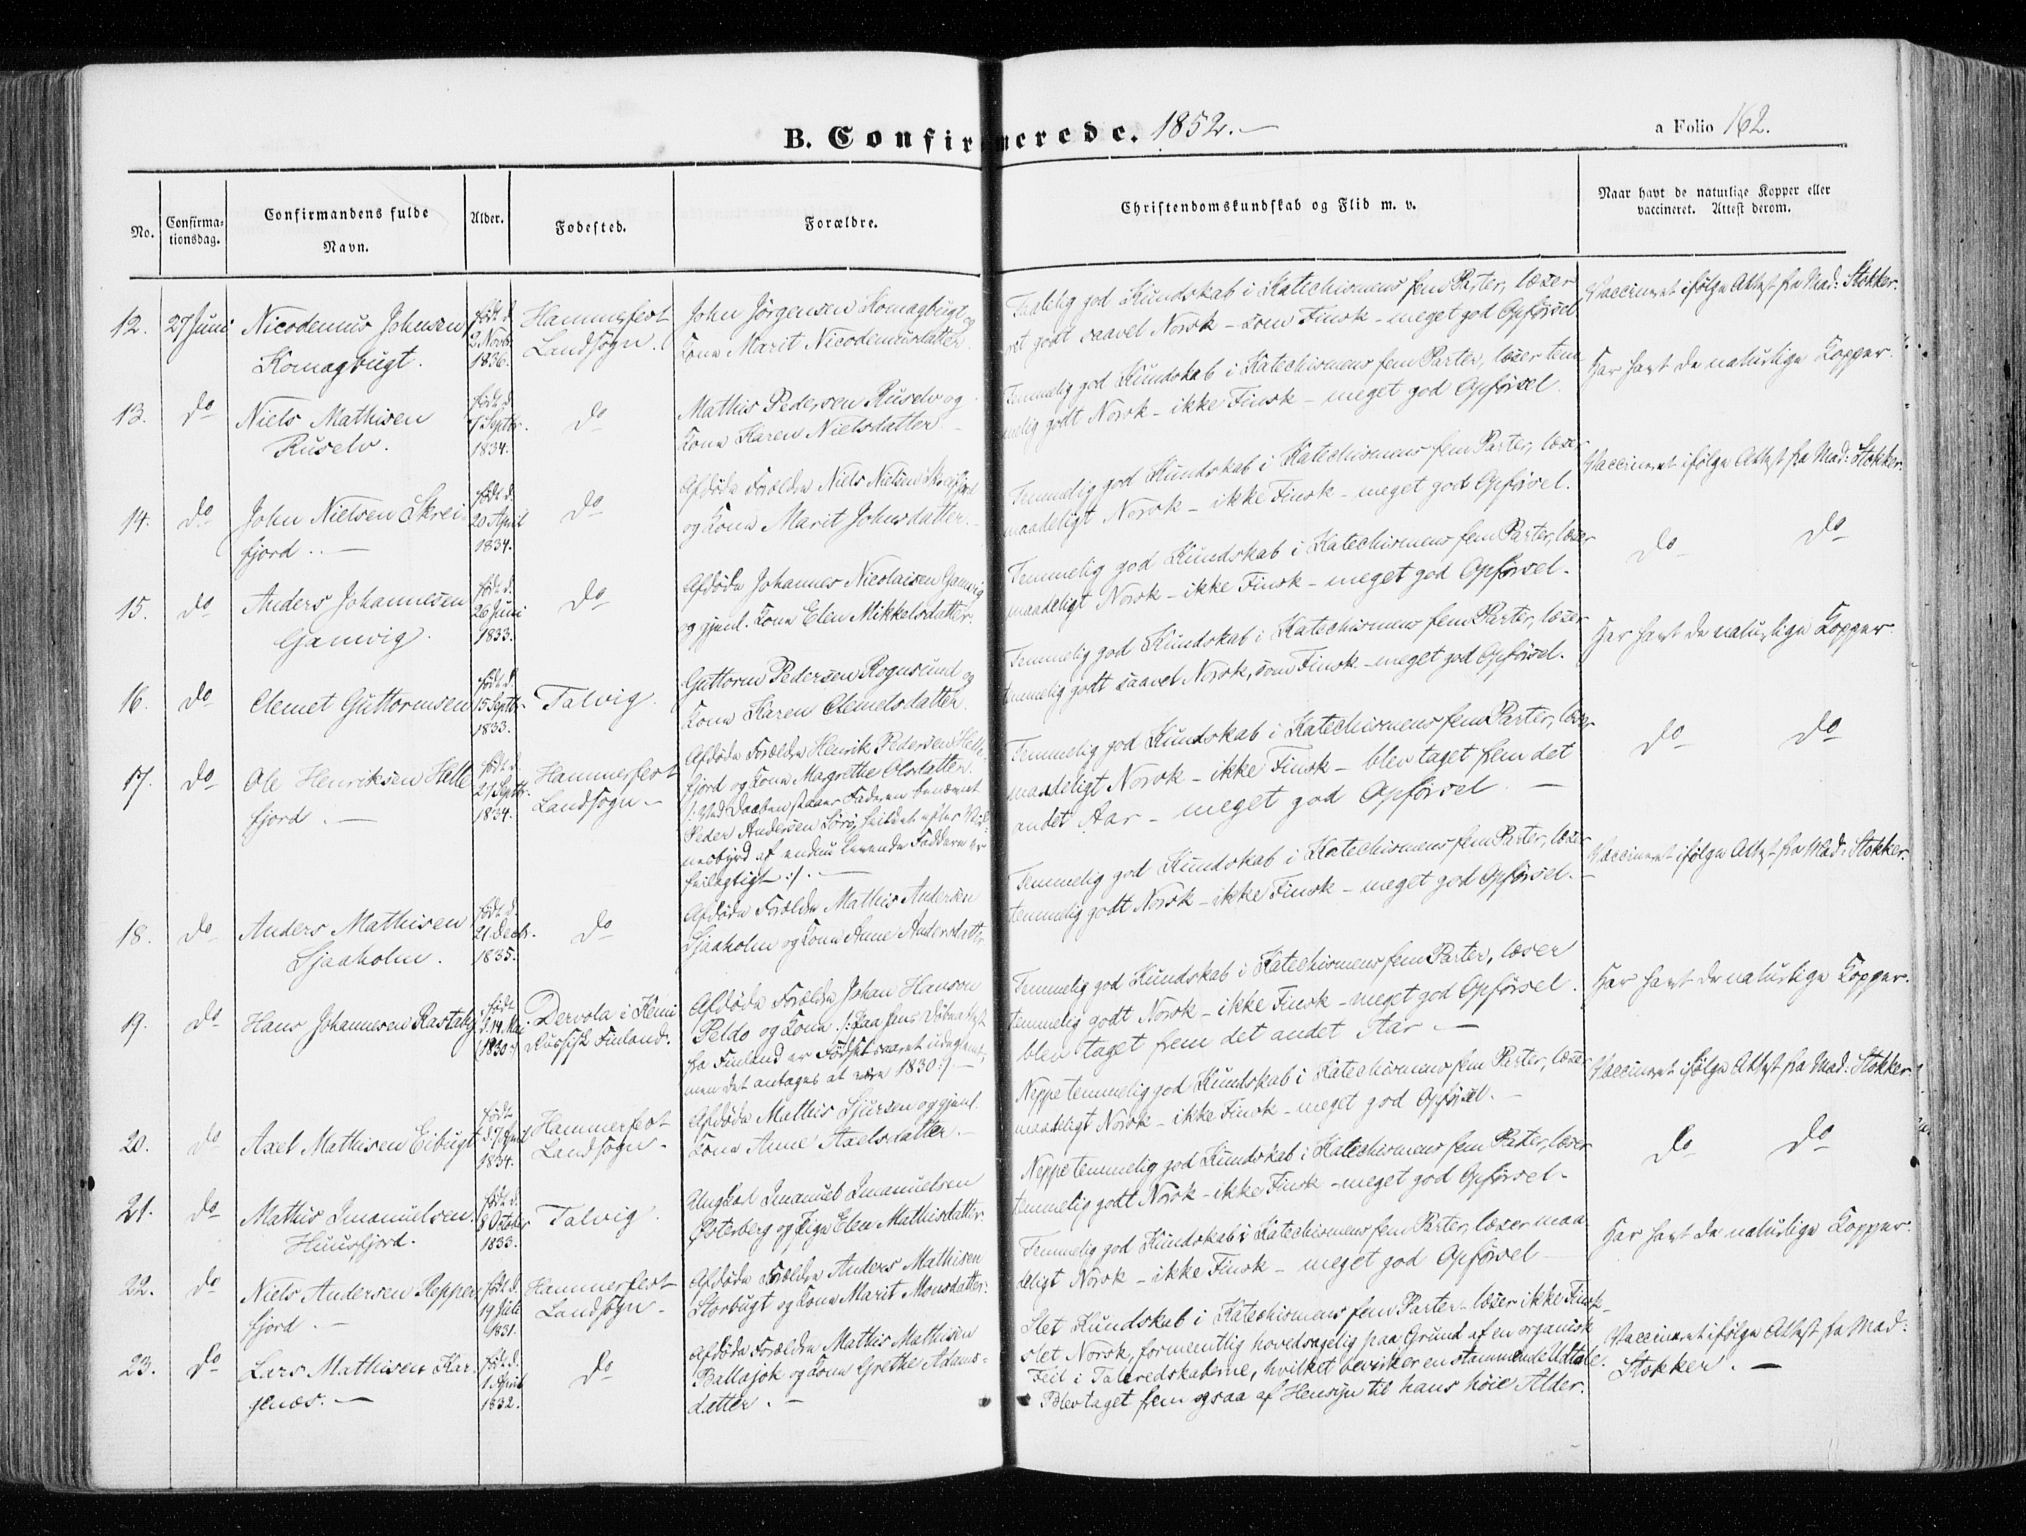 B. Confirmerede. 1852. —
a Folio 162.
No.
Confirma-
tionsdag.
Confirmandens fulde
Navn.
Alder.
Fødested.
Forældre.
Christendomskundskab og Flid m. v.
Naar havt de naturlige Kopper eller
vaccineret. Attest derom.
12. 27 Juni
Nicodemus Johnsen
Komagbugt.
født d.
2 Novbr.
1836.
Hammerfest
Landsogn.
John Jørgensen Komagbugt og
Kone Marit Nicodemusdatter.
Taalelig god Kundskab i Katechismens fem Parter, læser
ret godt saavel Norsk – som Finsk – meget god Opførsel
Vaccineret ifølge Attest fra Mad: Stokker.
13. do
Niels Mathisen
Ruselv.
født d.
Septbr.
1834.
do
Mathis Pedersen Ruselv og
Kone Karen Nielsdatter –
Temmelig god Kundskab i Katechismens fem Parter, læser tem-
melig godt Norsk – ikke Finsk – meget god Opførsel.
Har havt de naturlige Kopper.
14. do
John Nielsen Skrei
fjord. . —
født d.
20 April
1834.
do
Afdøde Forældre Niels Nielsen Skreifjord
og Kone Marit Johnsdatter. –
Temmelig god Kundskab i Katechismens fem Parter, læser
maadeligt Norsk – ikke Finsk – meget god Opførsel.
Vaccineret ifølge Attest fra Mad: Stokker.
15. do
Anders Johannesen
Gamvig.
født d.
26 Juni
1833.
do
Afdøde Johannes Nicolaisen Gamvig
og gjenl. Kone Elen Mikkelsdatter.
Temmelig god Kundskab i Katechismens fem Parter, læser
maadeligt Norsk – ikke Finsk – meget god Opførsel.
do do
16. do
Clemet Guttormsen
født d.
15 Septbr.
1833.
Talvig.
Guttorm Pedersen Rognsund og
Kone Karen Clemetsdatter.
Temmelig god Kundskab i Katechismens fem Parter, læser
temmelig godt saavel Norsk, som Finsk – meget god Opførsel.
Har havt de naturlige Kopper.
17. do
Ole Henriksen Helle
fjord. —
født d.
21 Septbr.
1834.
Hammerfest
Landsogn –
Afdøde Forældre Henrik Pedersen Helle
fjord og Kone Margrethe Olsdatter.
/: Ved Daaben staaer Faderen benævnt
Peder Andersen Sørø, hvilket efter Vid-
nesbyrd af endnu levende Faddere er
feilagtigt :/. —
Temmelig god Kundskab i Katechismens fem Parter, læser
maadeligt Norsk – ikke Finsk – blev taget frem det
andet Aar – meget god Opførsel. —
do do
18. do
Anders Mathisen
Sjaaholm.
født d.
21 Decbr.
1835.
do
Afdøde Forældre Mathis Andersen
Sjaaholm og Kone Anne Andersdatter
Temmelig god Kundskab i Katechismens fem Parter, læser
temmelig godt Norsk – ikke Finsk – meget god Opførsel. –
Vaccineret ifølge Attest fra Mad: Stokker.
19. do
Hans Johannesen Rastaby
født
d. 14 Mai
1830
Dervola i Kemi
Russisk Finland.
Afdøde Forældre Johan Hanson
Peldo og Kone. /: Paa hans Døbeattest
fra Finland er Fødselsaaret udeglemt,
men det antages at være 1830 :/. —
Temmelig god Kundskab i Katechismens fem Parter, læser
temmelig godt Norsk – ikke Finsk – meget god Opførsel.
blev taget frem det andet Aar. —
Har havt de naturlige Kopper.
20. do
Axel Mathisen Eibugt
født
d. 7
1834.
Hammerfest
Landsogn –
Afdøde Mathis Sjursen og gjenl.
Kone Anne Axelsdatter. —
Neppe temmelig god Kundskab i Katechismens fem Parter, læser
maadeligt Norsk – ikke Finsk – meget god Opførsel. –
Vaccineret ifølge Attest fra Mad: Stokker
21. do
Mathis Imanuelsen
Huusfjord.
født d.
8 October
1833.
Talvig.
Ungkarl Imanuel Imanuelsen
Østerberg og Pige Elen Mathisdatter.
Neppe temmelig god Kundskab i Katechismens fem Parter, læser
temmelig godt Norsk – ikke Finsk – meget god Opførsel –
do do
22. do
Niels Andersen Repper
fjord. —
født d.
19 Juli
1831.
Hammerfest
Landsogn –
Afdøde Forældre Anders Mathisen
Storbugt og Kone Marit Monsdatter.
Temmelig god Kundskab i Katechismens fem Parter, læser maa-
deligt Norsk – ikke Finsk – meget god Opførsel —
Har havt de naturlige Kopper.
23. do
Lars Mathisen Kar-
jenæs. —
født d.
1 April
1832.
do
Afdøde Forældre Mathis Mathisen
Ballajok og Kone Grethe Adams-
datter. —
Slet Kundskab i Katechismens fem Parter – læser ikke Finsk –
slet Norsk, formentlig hovedsagelig paa Grund af en organisk
Feil i Taleredskaberne, hvilket bevirker en stammende Udtale.
Blev taget frem ogsaa af Hensyn til hans høie Alder.
Vaccineret ifølge Attest fra Mad:
Stokker. —